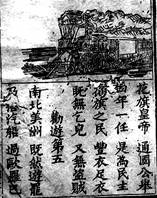 花旗皇帝 通國公舉
年一任 是為民主
旗之民 豐衣足衣
既無乞兒 又無盜賊
勸遊第五
南北美洲 既然遊罷
乃 汽 過歐羅巴